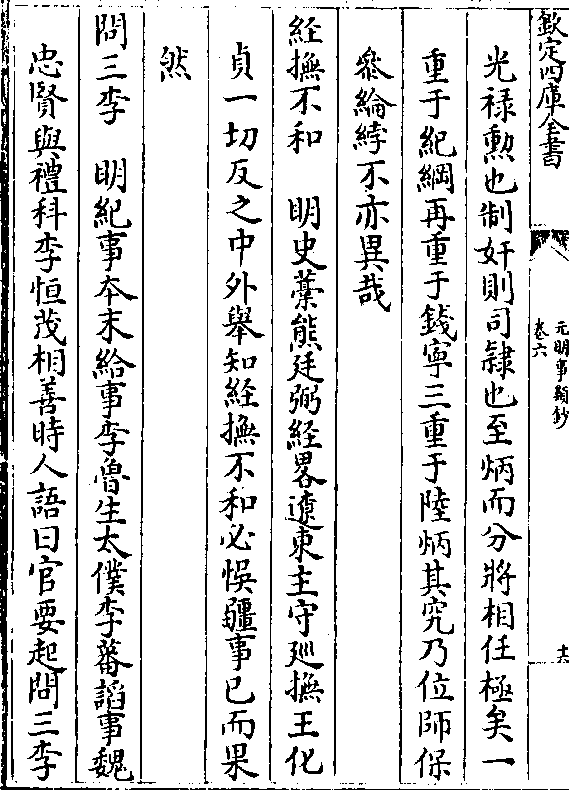 欽定四庫全書
元明事類鈔
卷六
十六
光禄勲也制奸則司隷也至炳而分將相任極矣一
重于紀綱再重于錢寧三重于陸炳其究乃位師保
叅綸綍不亦異哉
經撫不和 明史藁熊廷弼經畧遼東主守廵撫王化
貞一切反之中外舉知經撫不和必悞疆事已而果
然
問三李 明紀事本末給事李魯生太僕李蕃諂事魏
忠賢與禮科李恒茂相善時人語曰官要起問三李